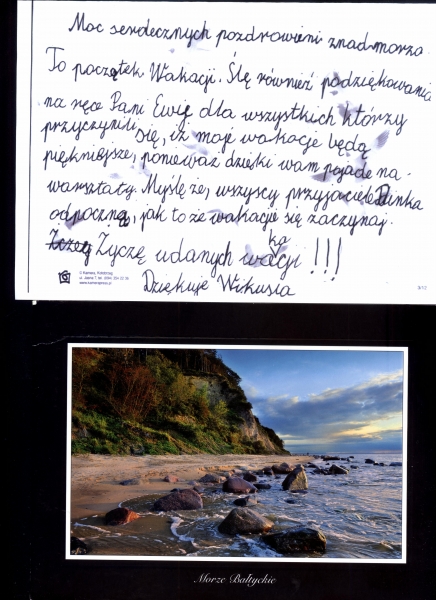 Moc serdecznych pozdrowieni znad morza
To początek Wakacji. Ślę również podziękowania
na ręce Pani Ewie dla wszystkich którzy
przyczynili się, iż moje wakacje będą
piękniejsze, ponieważ dzięki wam pojadę na-
warsztaty. Myślę że, wszyscy przyjaciele
odpoczną, jak to że wakacje się zaczynaj.
Życzę udanych wacyi !!!
ka
Dziękuje Wikusia
© Kamera, Kołobrzeg
www.kamerapress.pl
Morze Bałtyckie